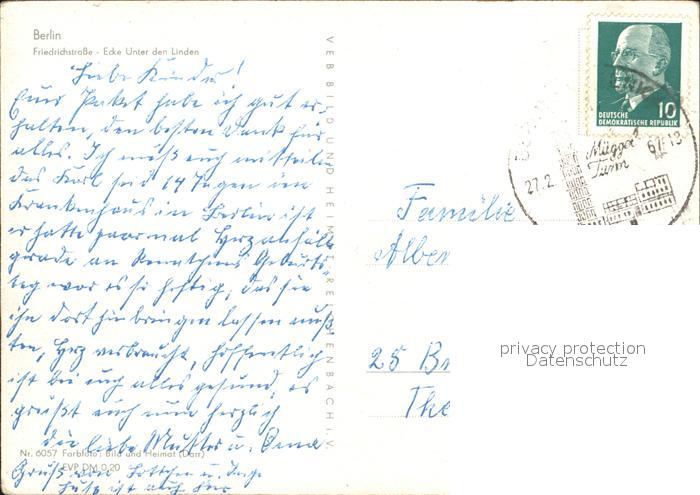 Berlin
Friedrichstraße - Ecke Unter den Linden
Liebe Kinder!
Euer Paket habe ich gut er-
halten, den besten Dank für
alles. Ich muß euch mitteilen
das Karl seid 14 Tagen im
Krankenhaus in Berlin ist
er hatte paarmal Herzanfälle
gerade an Geburts-
tag war es so heftig, das sie
ihn dort hin bringen lassen muß-
ten, Herz verbraucht, hoffentlich
ist bei euch alles gesund, es
grüßt euch nun herzlich
die liebe Mutter u. Oma
Gruß von Lottchen u. Inge
ist auch hier
Nr. 6057 Farbfoto: Bild und Heimat (Darr)
EVP DM 0,20
VEB BILD UND HEIMAT REICHENBACH i. V.
10
DEUTSCHE
DEMOKRATISCHE REPUBLIK
Müggel
Turm
27.2. 67-13
Familie
Alber
25 Br
The
privacy protection
Datenschutz